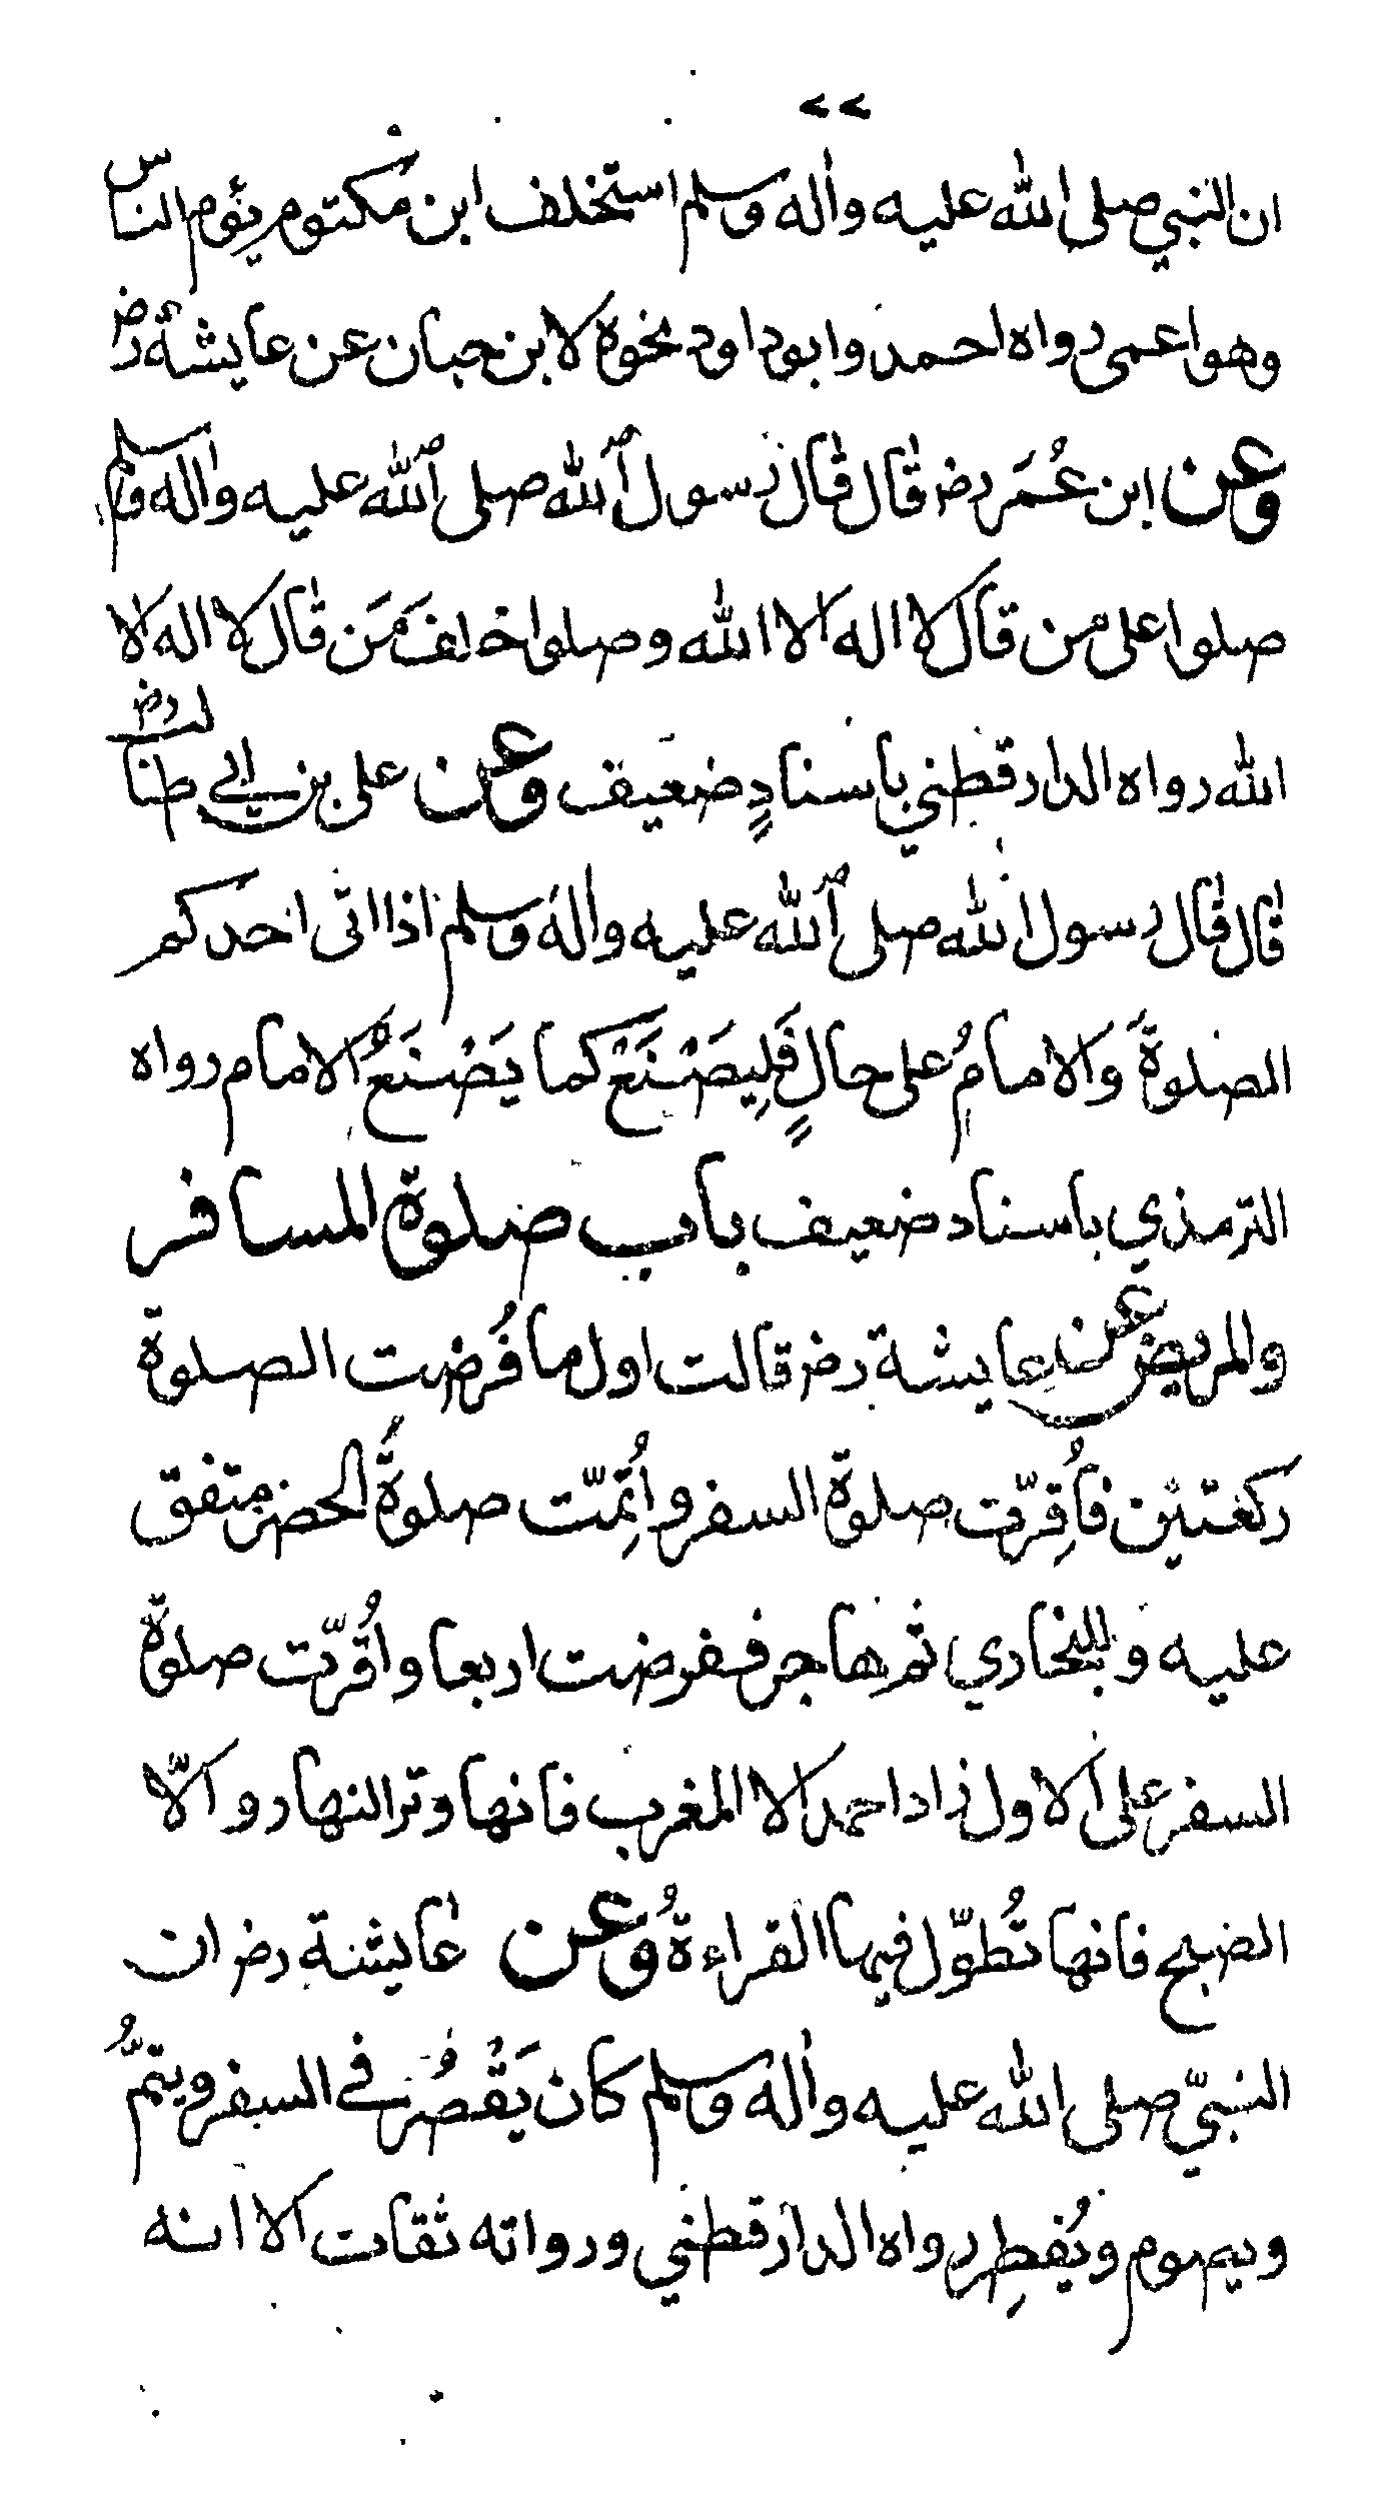 ٧٧
ان النبي صلى الله عليه واٰله وسلم استخلف ابن مكتوم يؤم الناس
وهو اعمى رواه احمد وابوداود نحوه لابن حبان عن عايشة رض
وعن ابن عُمَر رض قال قال رسول الله صلى الله عليه واٰله وسلم
صلوا على من قال لا اله الا الله وصلوا خلفَ مَن قال لا اله الا
الله رواه الدارقطني باسنادٍ ضعيف وعن على بن ابي طالب رض
قال قال رسول الله صلى الله عليه واٰله وسلم اذا اتى احدكم
الصلوةَ وَالامامُ على حالٍ فَلِيصَنَعْ كما يَصْنَعُ الامام رواه
الترمذي باسناد ضعيف باب صلوة المسافر
والمريض عن عايشة رض قالت اول ما فُرضت الصلوة
ركعتين فاُقِرّت صلوة السفر واُتِمّت صلوةُ الحضر متفق
عليه وللبخاري ثم هاجر ففرضت اربعا واُقرّت صلوة
السفر على الاول زاد احمد الا المغرب فانها وتر النهار والّا
الصبح فانها تُطوّل فيها القراءةُ وعن عايشة رض ان
النبيّ صلى الله عليه واٰله وسلم كان يَقْصُر في السفر ويتمُّ
ويصوم ويُفطِر رواه الدارقطني ورواته ثقات الا انه